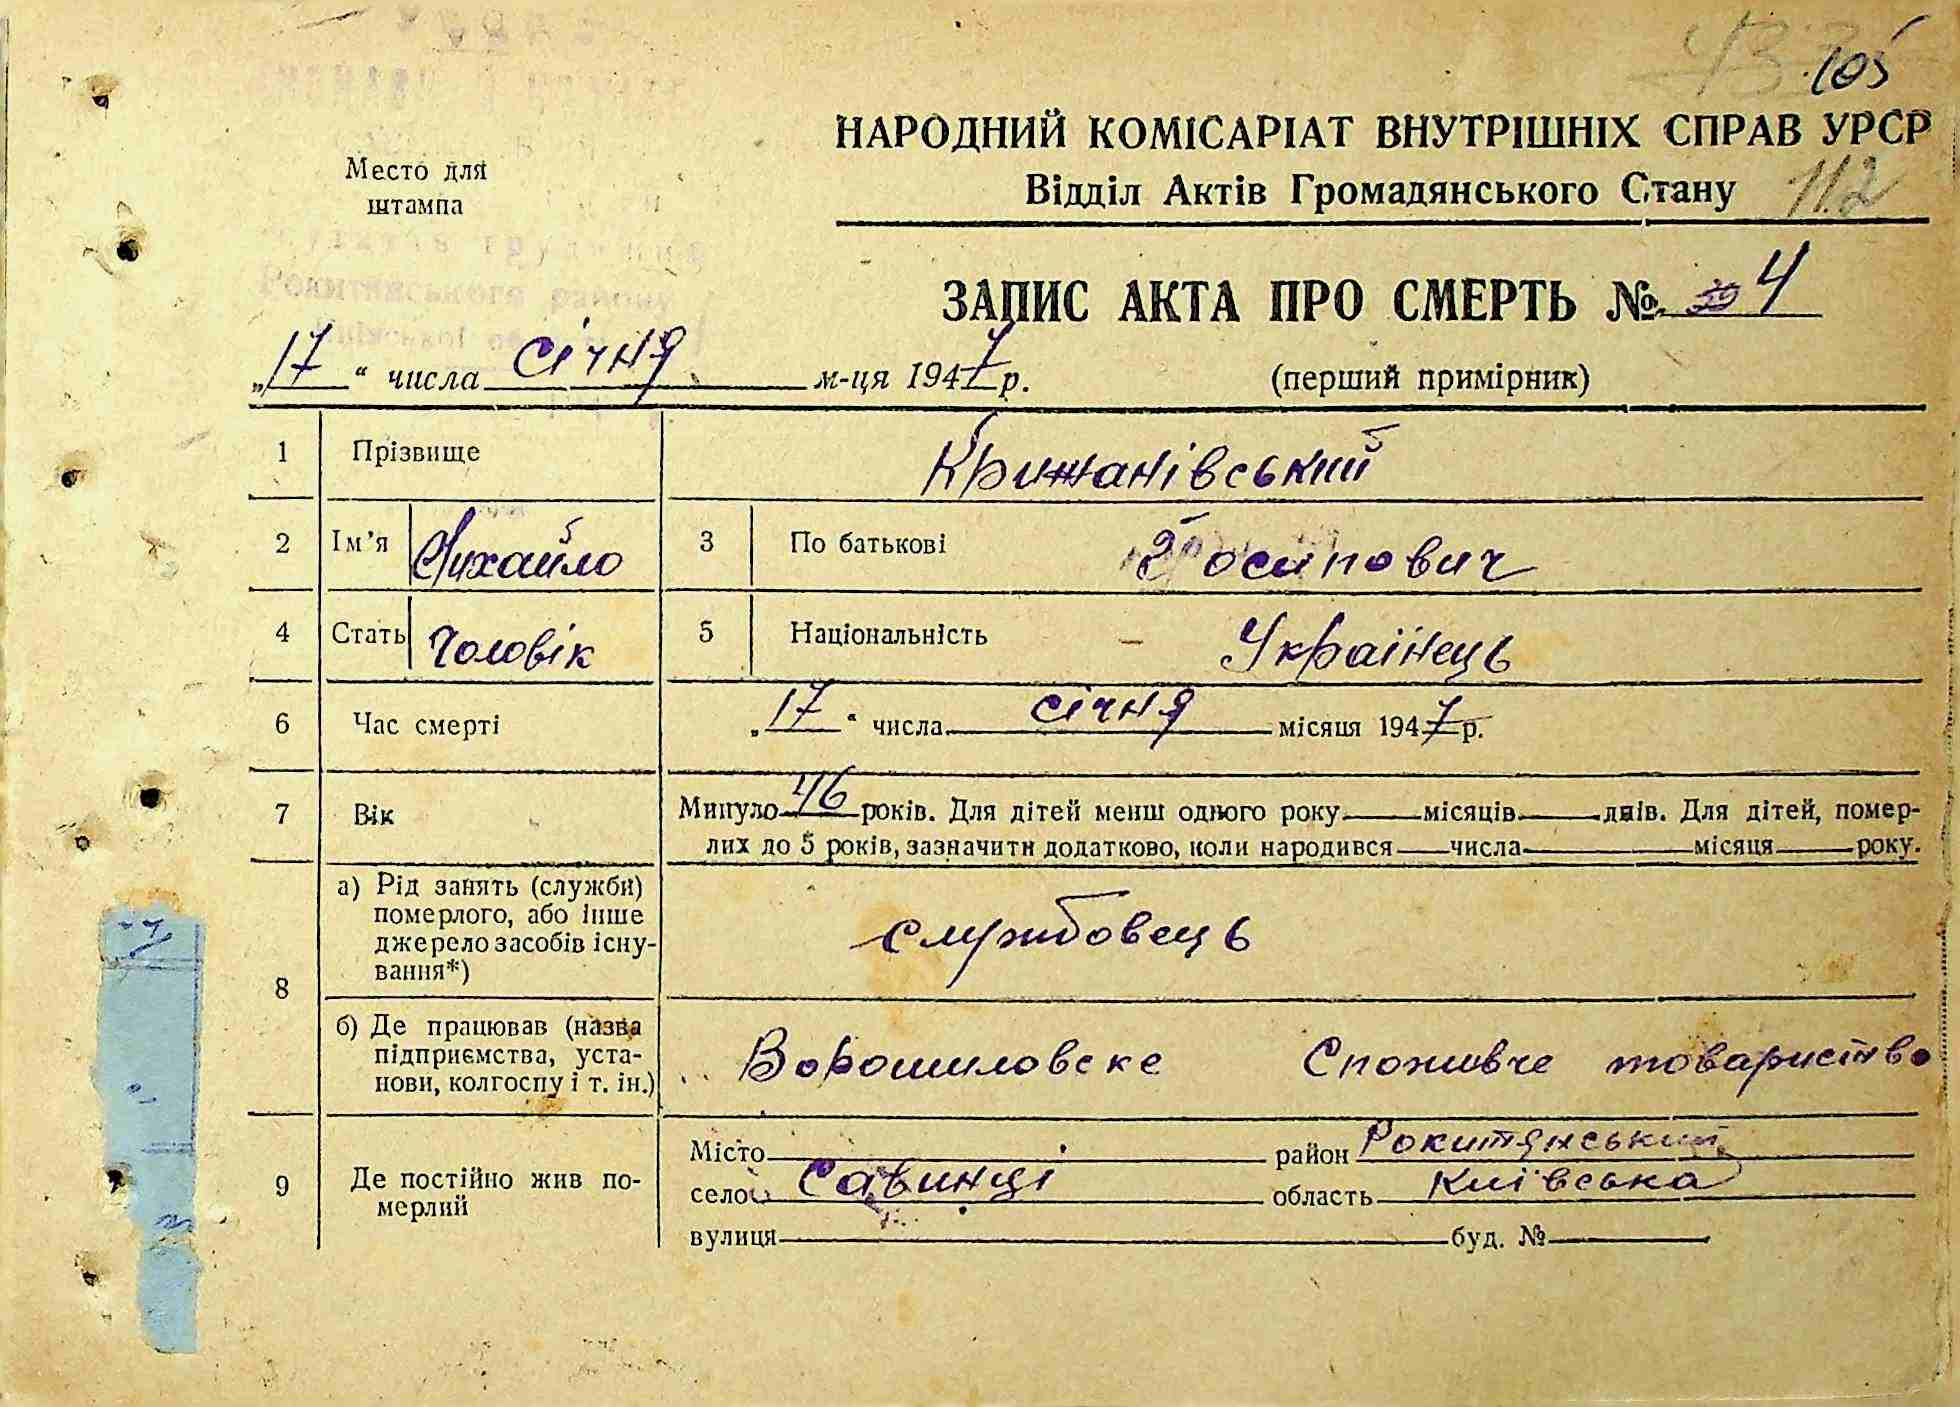 105
НАРОДНИЙ КОМІСАРІАТ ВНУТРІШНІХ СПРАВ УРСР
Відділ Актів Громадянського Стану 112
Место для
штампа
Рокитнянського району
ЗАПИС АКТА ПРО СМЕРТЬ № 4
„17“ числа січня м-ця 1947 р.
(перший примірник)
1 Прізвище Крижанівський
2 Ім’я Михайло 3 По батькові Йосипович
4 Стать Чоловік 5 Національність Українець
6 Час смерті „17“ числа січня місяця 1947 р.
7 Вік Минуло 46 років. Для дітей менш одного року місяців днів. Для дітей, помер-
лих до 5 років, зазначити додатково, коли народився числа місяця року.
8
а) Рід занять (служби)
померлого, або інше
джерело засобів існу-
вання*)
службовець
б) Де працював (назва
підприємства, уста-
нови, колгоспу і т. ін.)
Ворошиловске Споживче товариство
9 Де постійно жив по-
мерлий
Місто район Рокитянський
село Савинці область Київська
вулиця буд. №